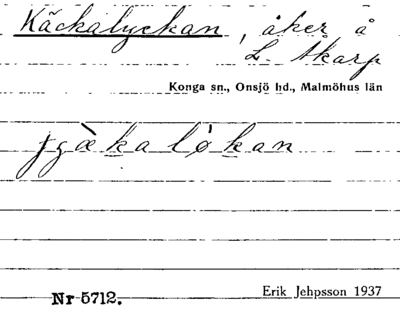 Käckalyckan, åker å
L. Akarp
Konga sn., Onsjö hd., Malmöhus län
Nr 5712.
Erik Jehpsson 1937